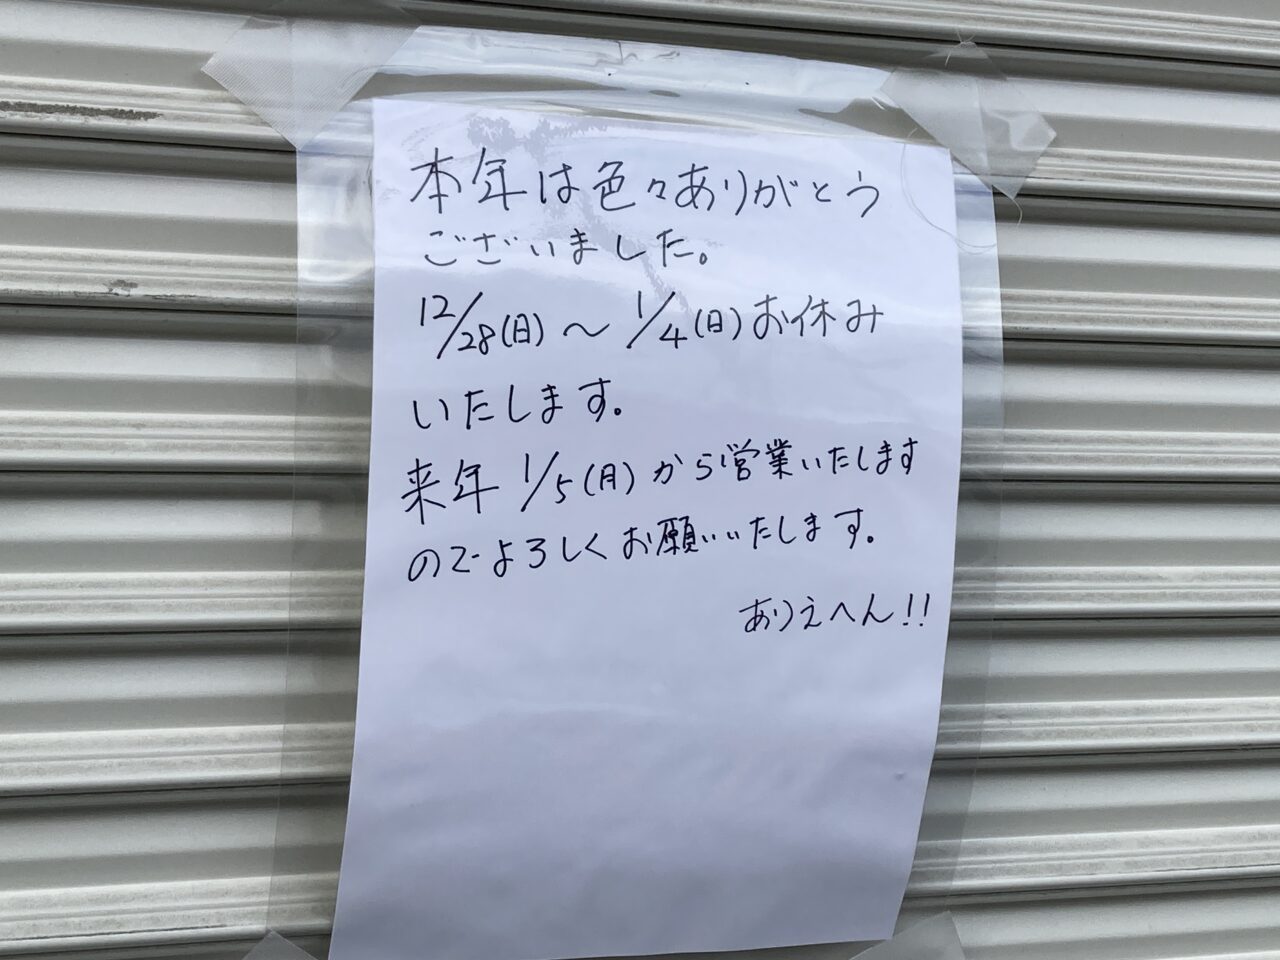 本年は色々ありがとう
ございました。
12/28(日)～1/4(日)お休み
いたします。
来年1/5(月)から営業いたします
のでよろしくお願いいたします。
ありえへん!!